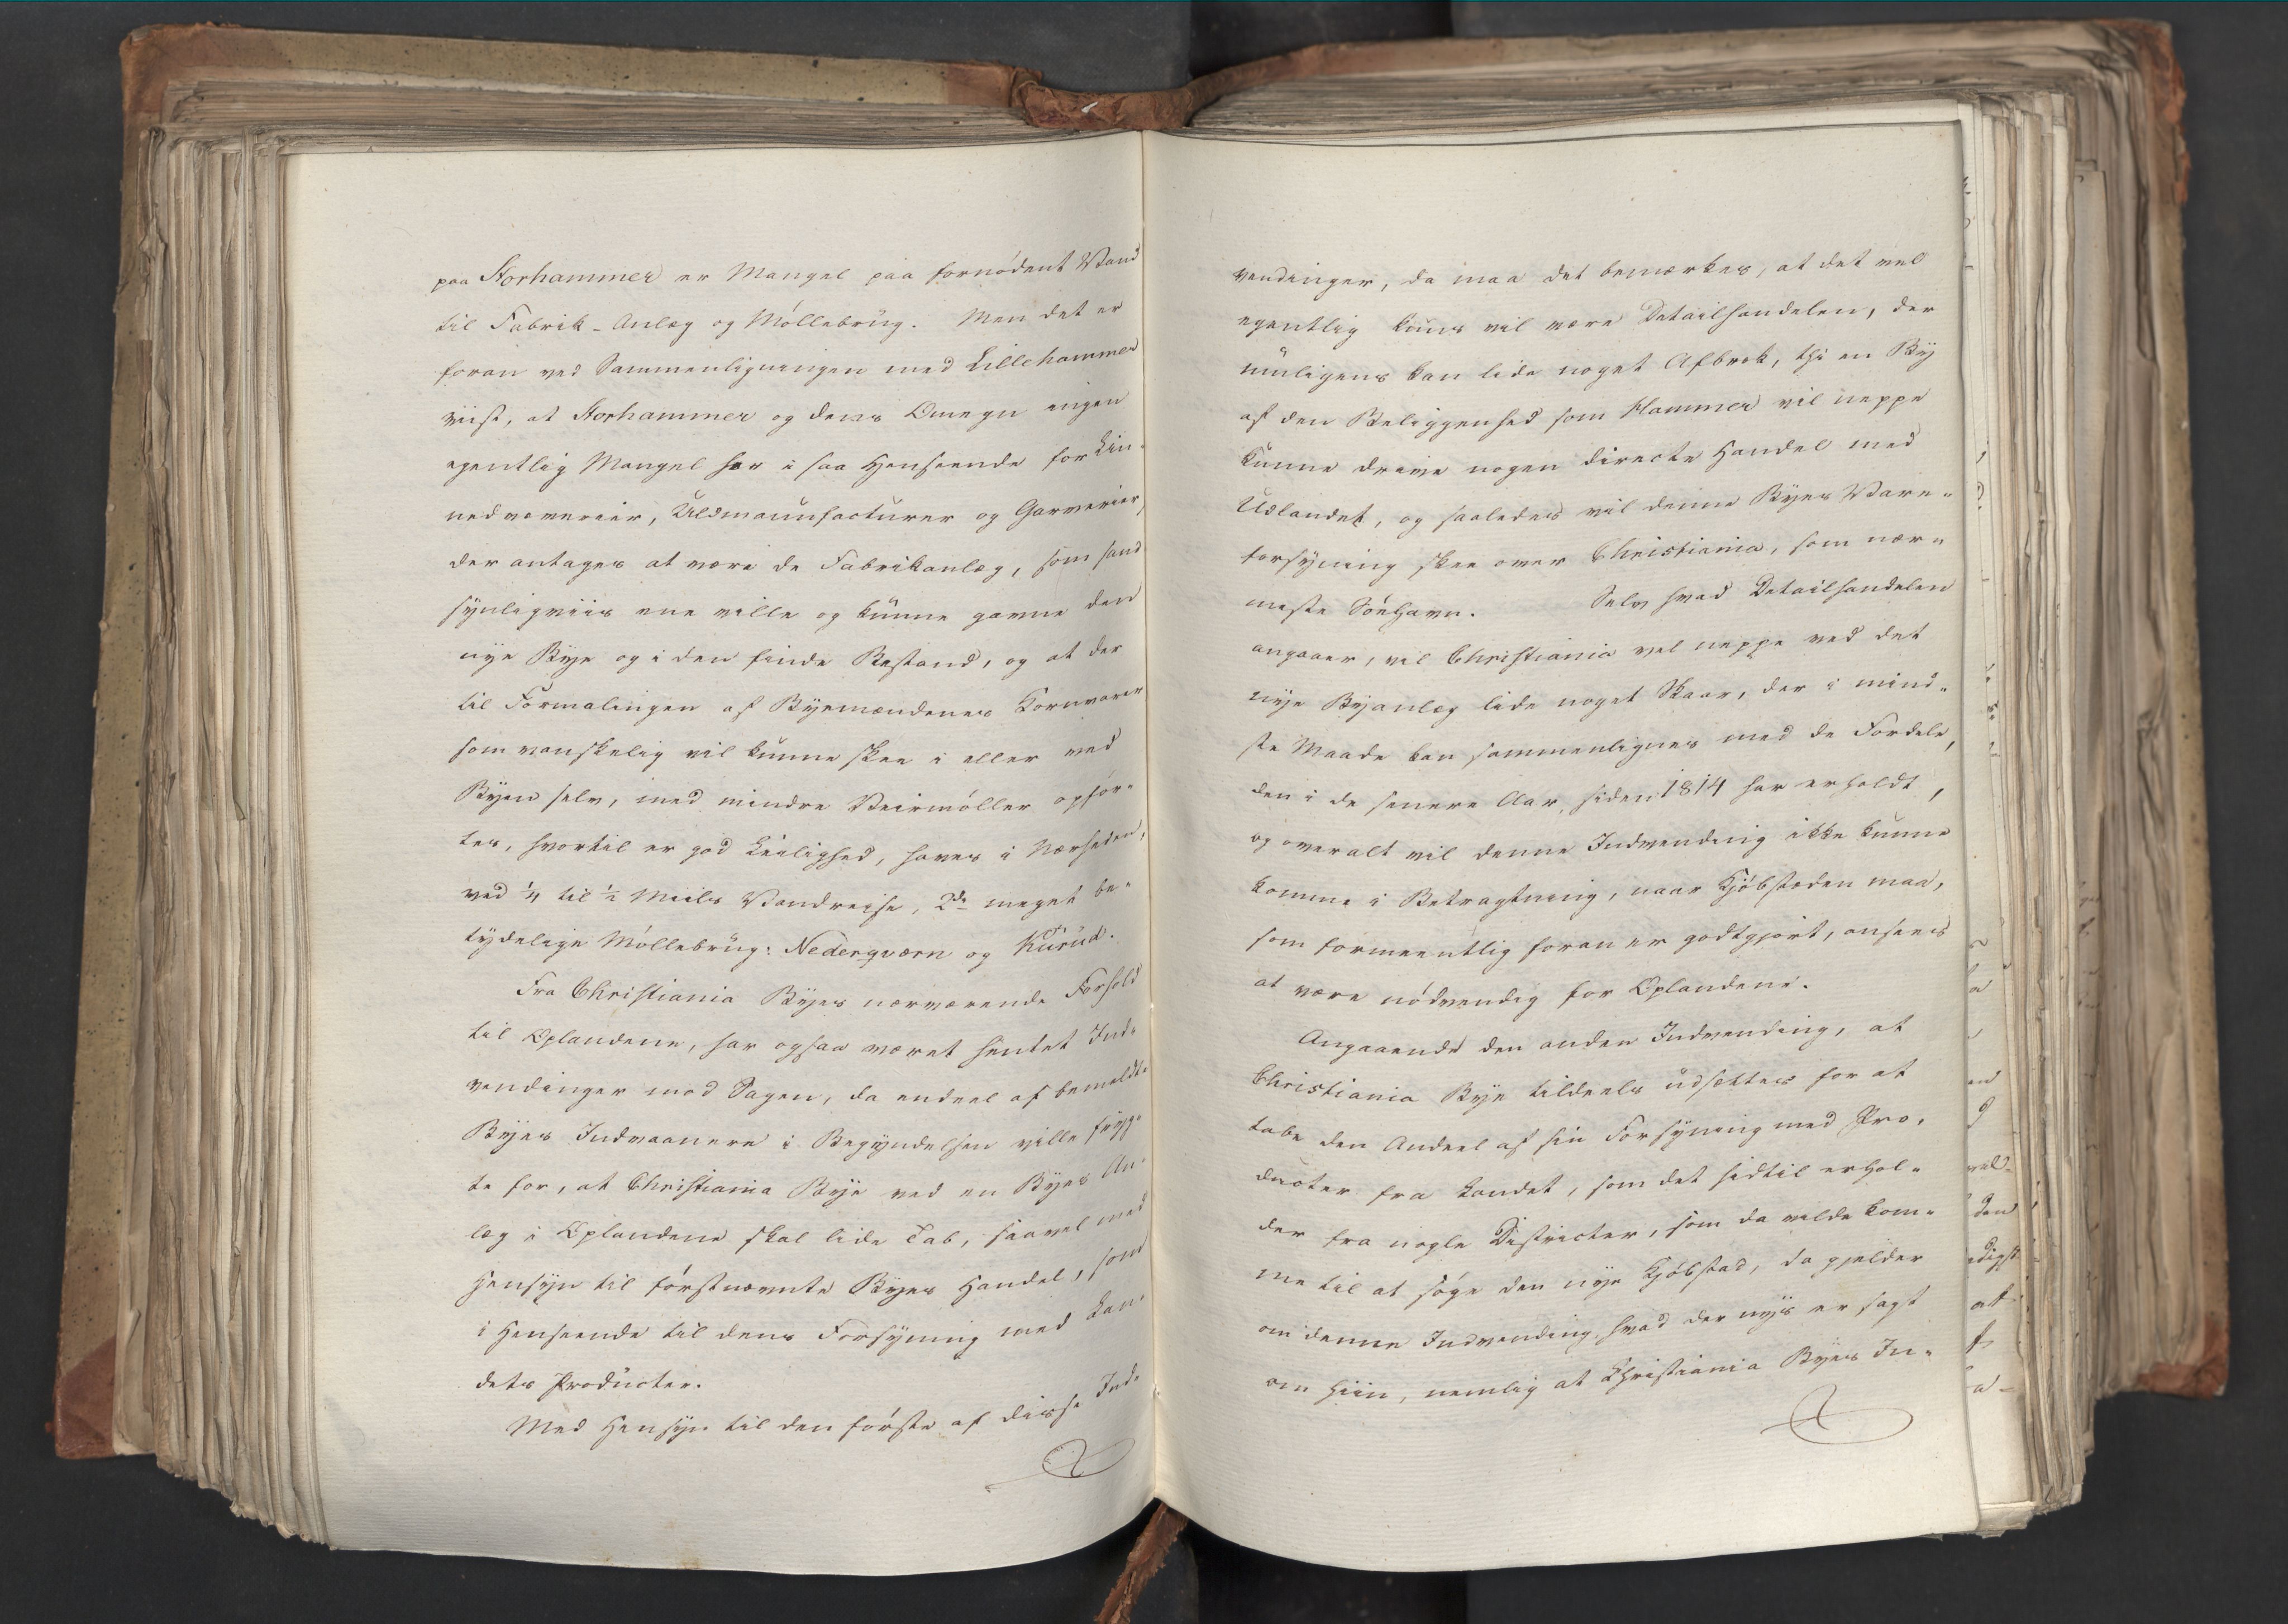 paa Storhammer er Mangel paa fornödent Vand
til Fabrik-Anlæg og Möllebrug. Men det er
foran ved Sammenligningen med Lillehammer
viist, at Storhammer og dens Omegn ingen
egentlig Mangel har i saa Henseende for Lin-
nedvæverier, Uldmanufacturer og Garverier,
der antages at være de Fabrikanlæg, som sand
synligviis ene ville og kunne gavne den
nye Bye og i den finde Bestand, og at der
til Formalingen af Byemændenes Kornvarer
som vanskelig vil kunne skee i eller ved
Byen selv, med mindre Veirmöller opför-
tes, hvortil er god Leilighed, haves i Nærheden,
ved 1/4 til 1/2 Miils Vandreise, 2de meget be-
tydelige Möllebrug: Nederqværn og Kurud.
Fra Christiania Byes nærværende Forhold
til Oplandene, har ogsaa været hentet Ind-
vendinger mod Sagen, da endeel af bemeldte
Byes Indvaanere i Begyndelsen ville fryg-
te for, at Christiania Bye ved en Byes An-
læg i Oplandene skal lide Tab, saavel med
Hensyn til förstnævnte Byes Handel, som
i Henseende til dens Forsyning med Lan-
dets Producter.
Med Hensyn til den förste af disse Ind-
vendinger, da maa det bemærkes, at det vel
egentlig kuns vil være Detailhandelen, der
muligens kan lide noget Afbræk, thi en By
af den Beliggenhed som Hammer vil neppe
kunne drive nogen directe Handel med
Udlandet, og saaledes vil denne Byes Vare-
forsyning skee over Christiania, som nær-
meste Söehavn. Selv hvad Detailhandelen
angaaer, vil Christiania vel neppe ved det
nye Byanlæg lide noget Skaar, der i mind-
ste Maade kan sammenlignes med de Fordele,
den i de senere Aar, siden 1814 har erholdt,
og overalt vil denne Indvending ikke kunne
komme i Betragtning, naar Kjöbstæden maa,
som formeentlig foran er godtgjort, ansees
at være nödvendig for Oplandene.
Angaaende den anden Indvending, at
Christiania Bye tildeels udsættes for at
tabe den Andeel af sin Forsyning med Pro-
ducter fra Landet, som det hidtil erhol-
der fra nogle Districter, som da vilde kom-
me til at söge den nye Kjöbstad, da gjelder
om denne Indvending, hvad der nys er sagt
om hiin, nemlig at Christiania Byes In-